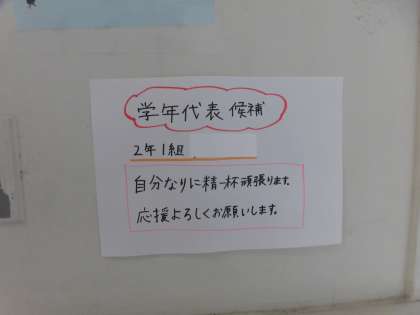 学年代表候補
2年1組
自分なりに精一杯頑張ります。
応援よろしくお願いします。